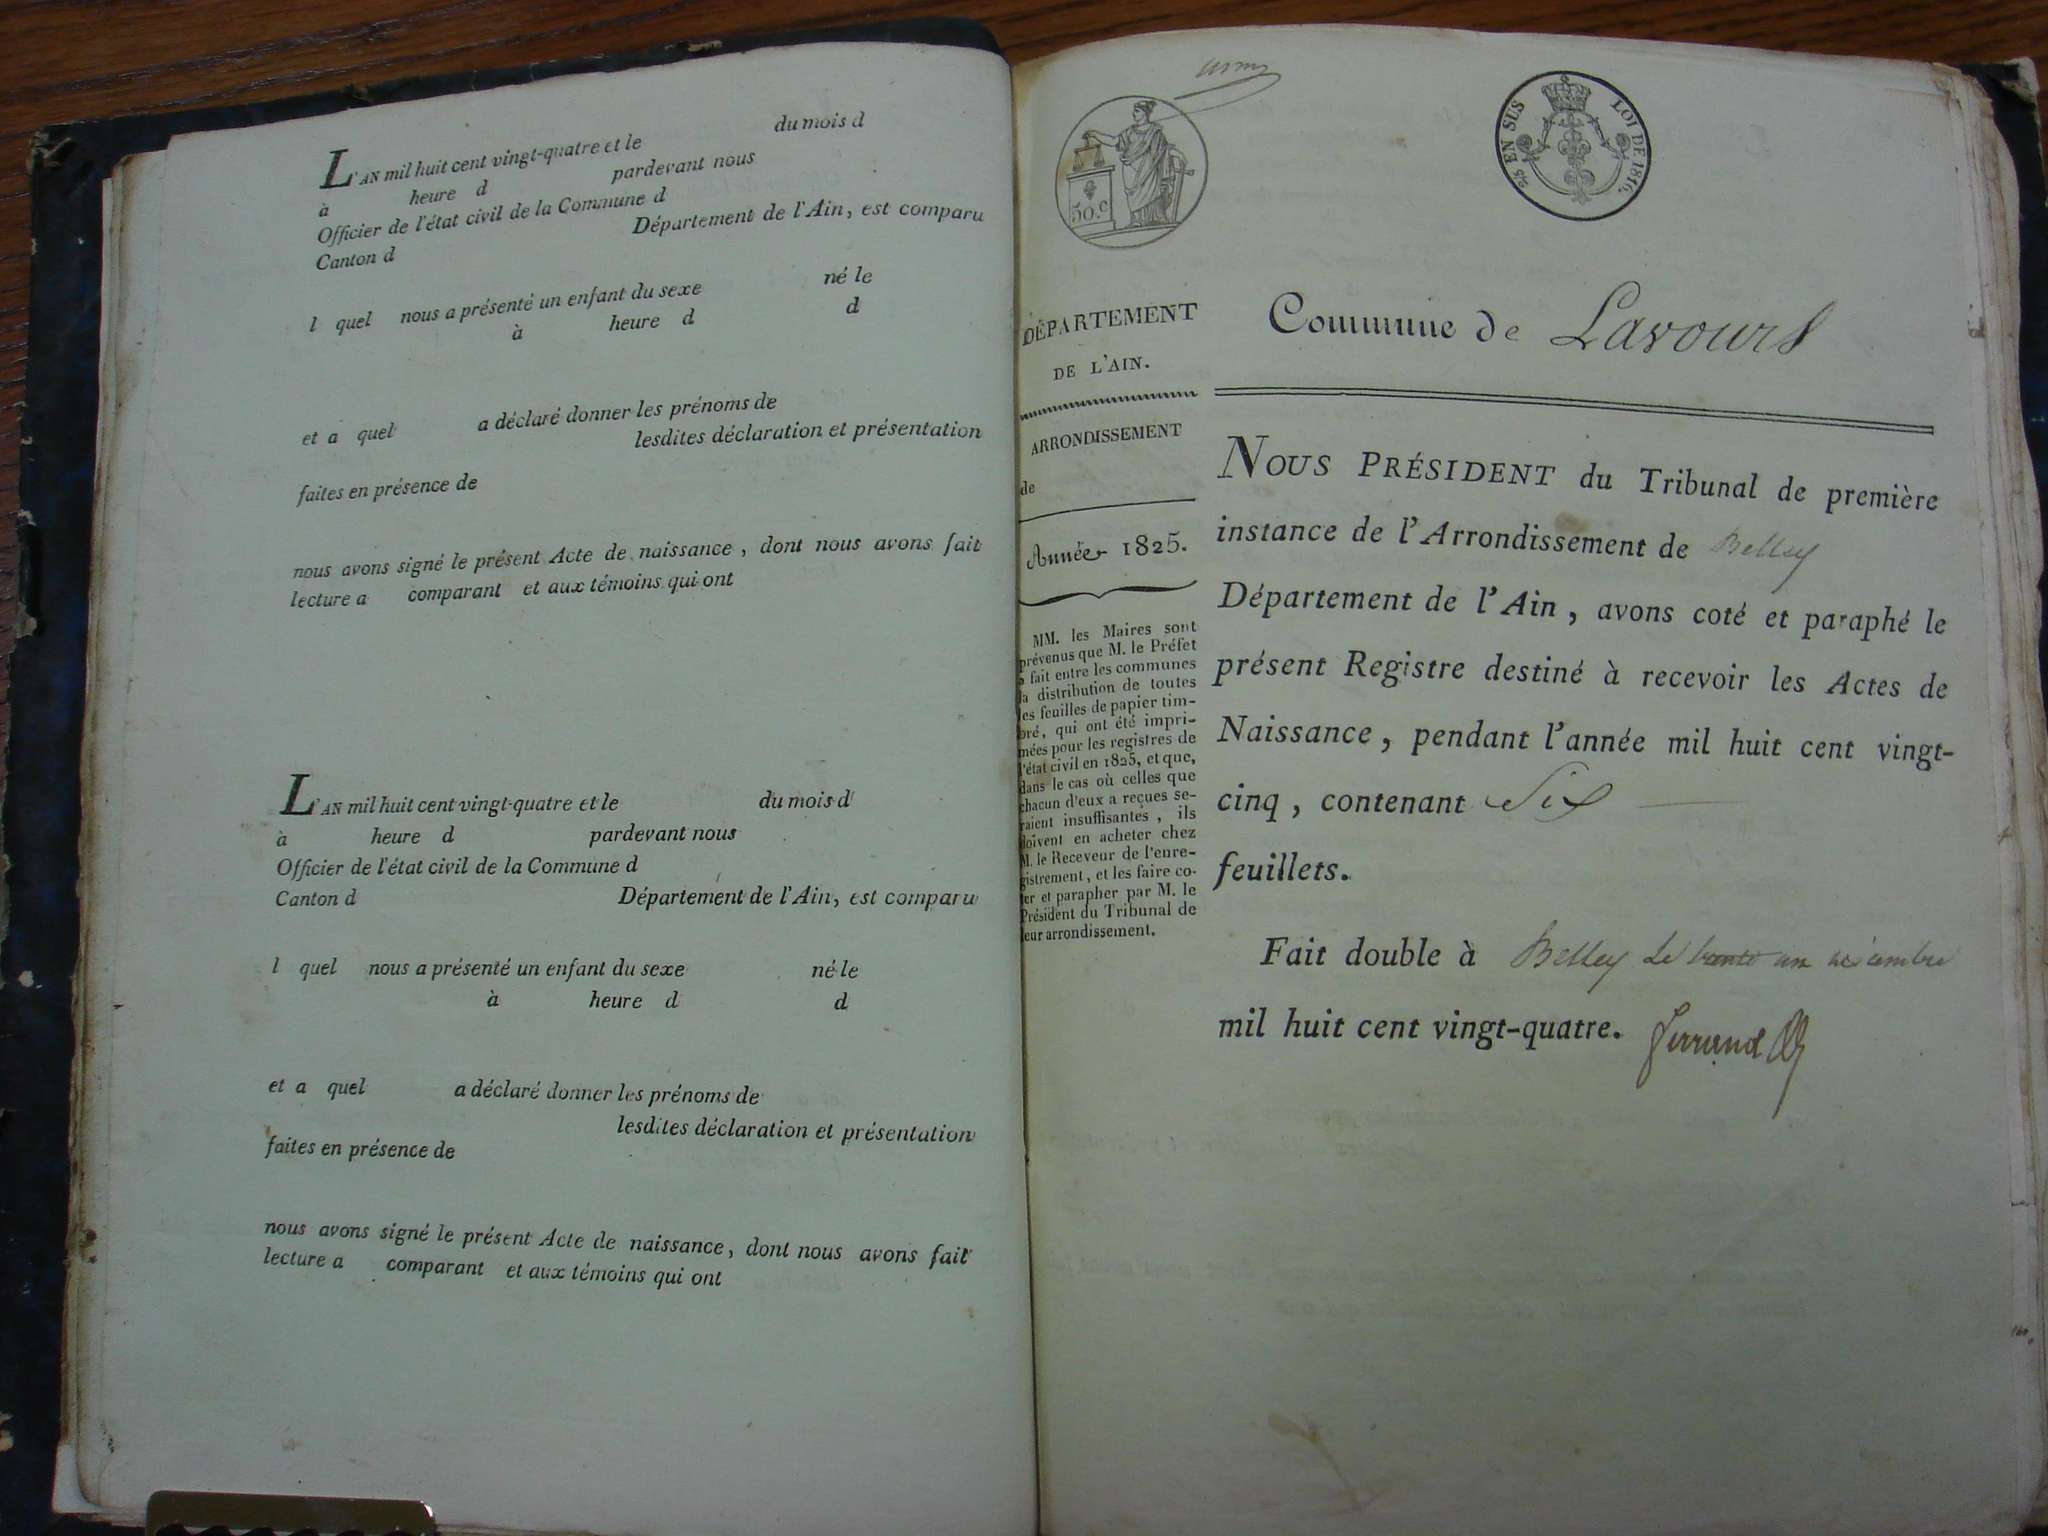 L'AN mil huit cent vingt-quatre et le du mois d
à heure d pardevant nous
Officier de l'état civil de la Commune d
Canton d Département de l'Ain, est comparu
l quel nous a présenté un enfant du sexe né le
à heure d d
et a quel a déclaré donner les prénoms de
lesdites déclaration et présentation
faites en présence de
nous avons signé le présent Acte de naissance, dont nous avons fait
lecture a comparant et aux témoins qui ont
L'AN mil huit cent vingt-quatre et le du mois d
à heure d pardevant nous
Officier de l'état civil de la Commune d
Canton d Département de l'Ain, est comparu
l quel nous a présenté un enfant du sexe né le
à heure d d
et a quel a déclaré donner les prénoms de
lesdites déclaration et présentation
faites en présence de
nous avons signé le présent Acte de naissance, dont nous avons fait
lecture a comparant et aux témoins qui ont
50.c
2/5 EN SUS LOI DE 1816.
DÉPARTEMENT
DE L'AIN.
ARRONDISSEMENT
de
Année 1825.
MM. les Maires sont
prévenus que M. le Préfet
a fait entre les communes
la distribution de toutes
les feuilles de papier tim-
bré, qui ont été impri-
mées pour les registres de
l'état civil en 1825, et que,
dans le cas où celles que
chacun d'eux a reçues se-
raient insuffisantes, ils
doivent en acheter chez
M. le Receveur de l'enre-
gistrement, et les faire co-
ter et parapher par M. le
Président du Tribunal de
leur arrondissement.
Commune de Lavours
NOUS PRÉSIDENT du Tribunal de première
instance de l'Arrondissement de Belley
Département de l'Ain, avons coté et paraphé le
présent Registre destiné à recevoir les Actes de
Naissance, pendant l'année mil huit cent vingt-
cinq, contenant Six
feuillets.
Fait double à Belley le trente un décembre
mil huit cent vingt-quatre. Ferrand